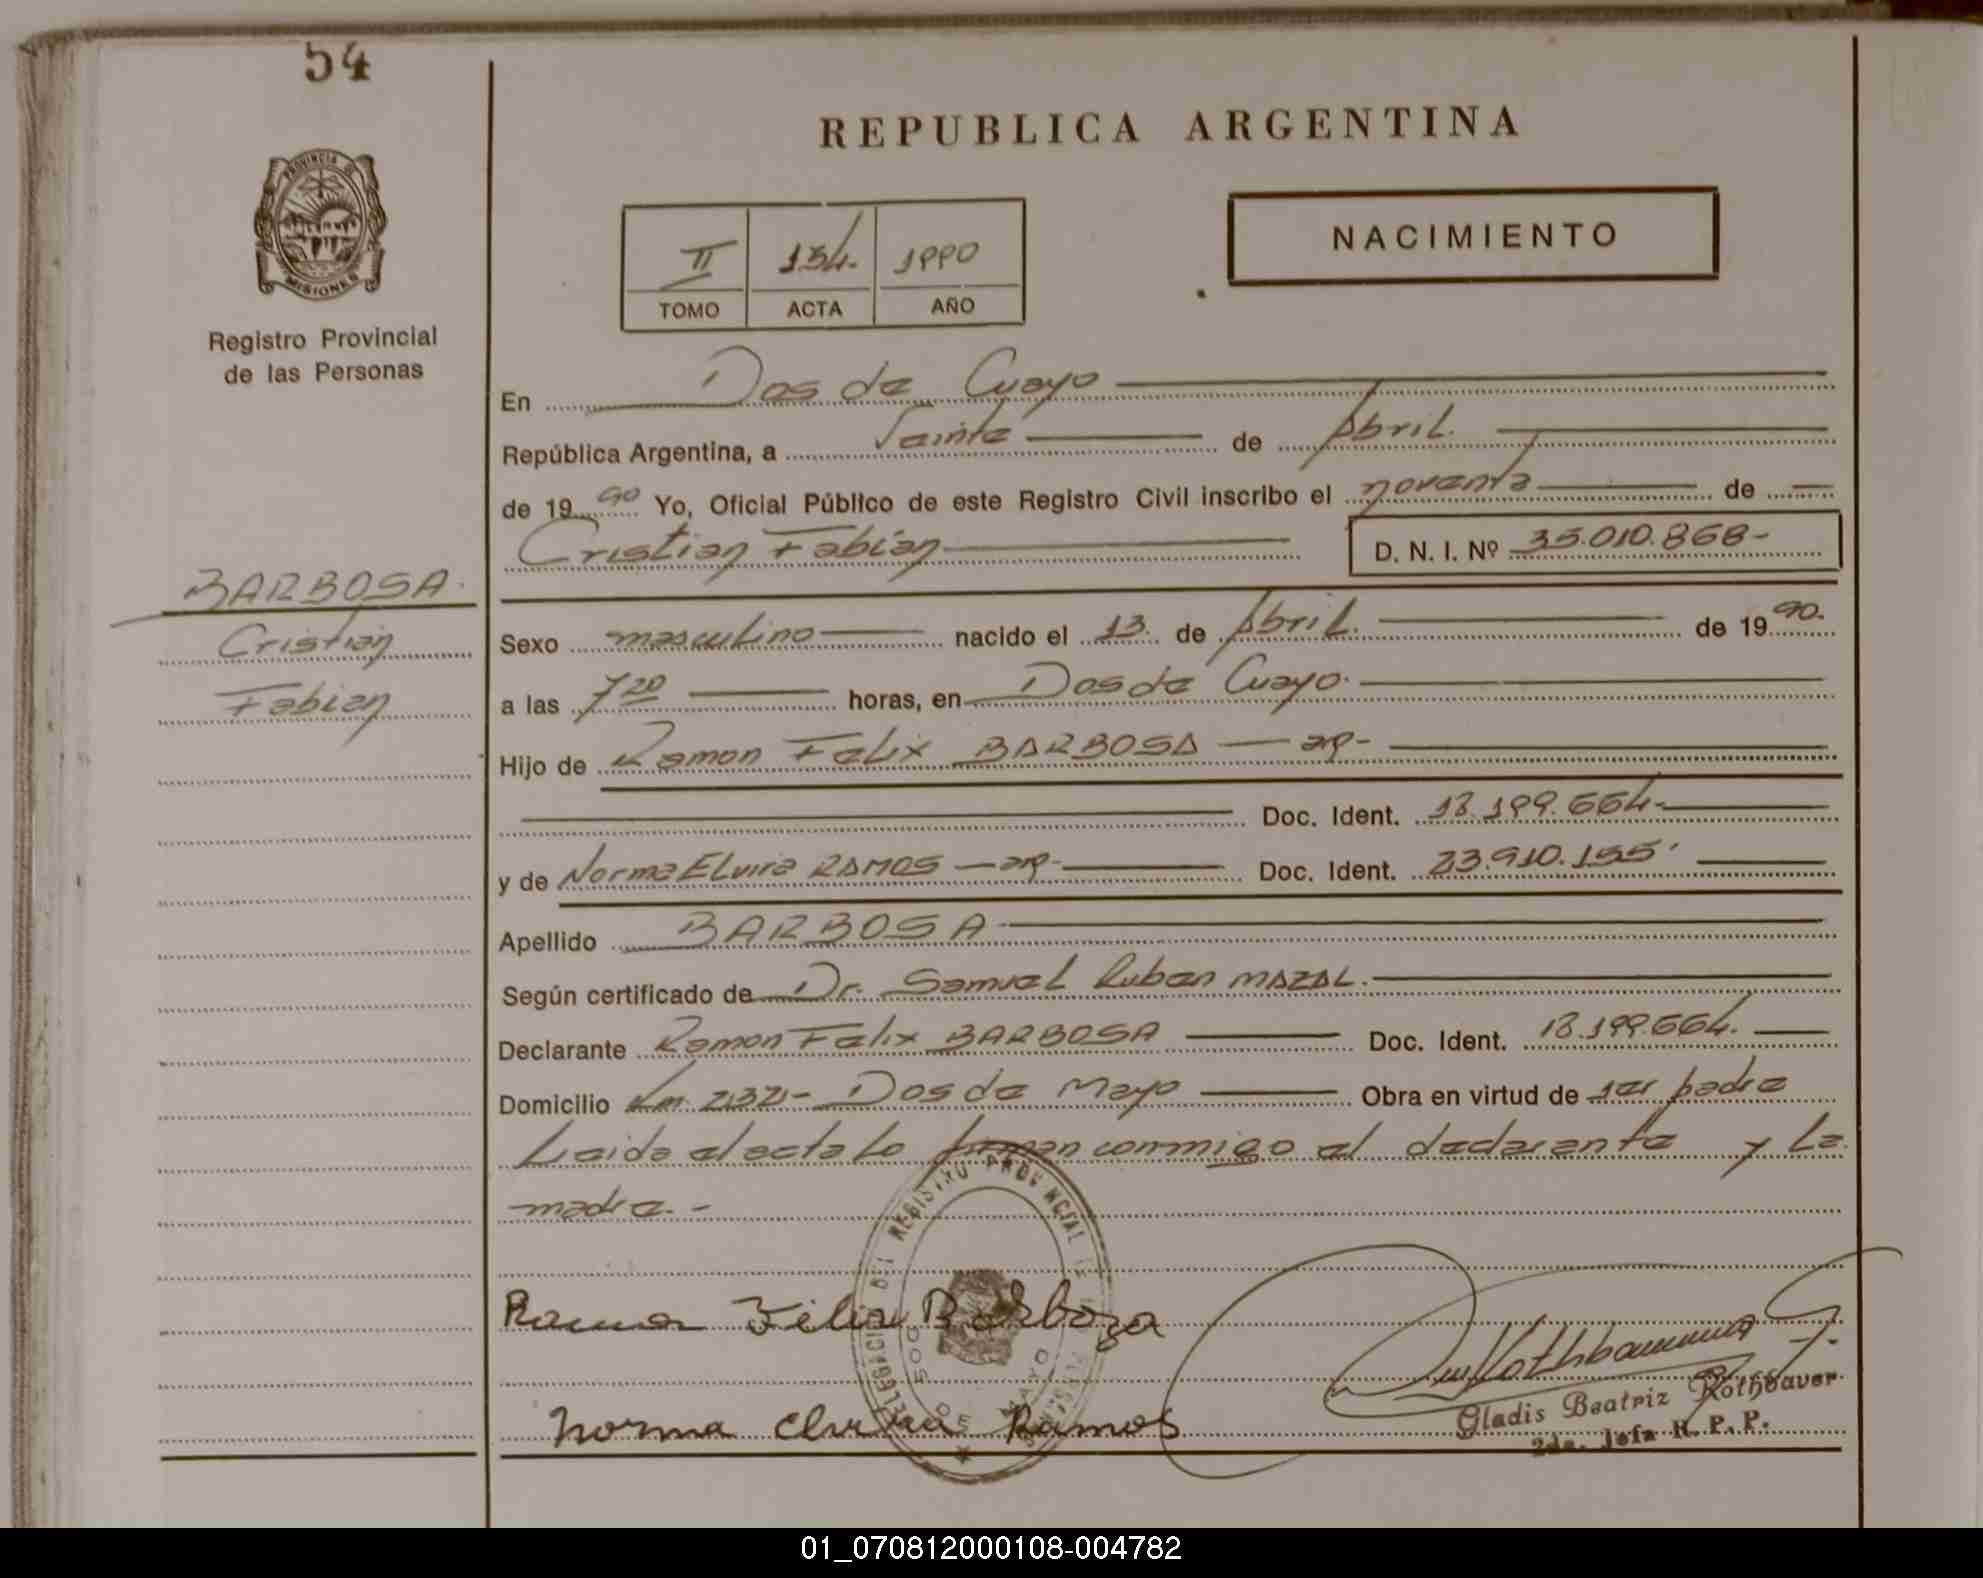 54
REPUBLICA ARGENTINA
PROVINCIA DE
MISIONES
Registro Provincial
de las Personas
II 134. 1990
TOMO ACTA AÑO
NACIMIENTO
En Dos de Cuayo
República Argentina, a Veinte de Abril.
de 19 90 Yo, Oficial Público de este Registro Civil inscribo el noventa de
Cristian Fabian D. N. I. Nº 35.010.868-
BARBOSA.
Cristian
Fabian
Sexo masculino nacido el 13. de Abril. de 19 90.
a las 7 20 horas, en Dos de Cuayo.
Hijo de Ramon Felix BARBOSA — arg-
Doc. Ident. 18.199.664-
y de Norma Elvira RAMOS — arg- Doc. Ident. 23.910.155.
Apellido BARBOSA
Según certificado de Dr. Samuel Ruben MAZAL.
Declarante Ramon Felix BARBOSA Doc. Ident. 18.199.664.
Domicilio Km. 232- Dos de Mayo Obra en virtud de ser padre
Leida el acta lo firman conmigo el declarante y la
madre.-
DELEGACION DEL REGISTRO PROVINCIAL DE LAS PERSONAS
DOS DE MAYO
Ramon Felix Barboza
Norma Elvira Ramos
Gladis Beatriz Rothbauer
2da. Jefa R. P. P.
01_070812000108-004782